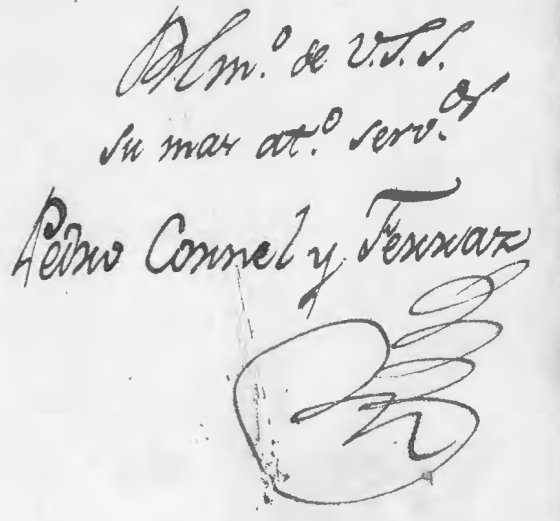 BLm.º de V.S.S.
su mas at.º serv.ºr
Pedro Connel y Ferraz